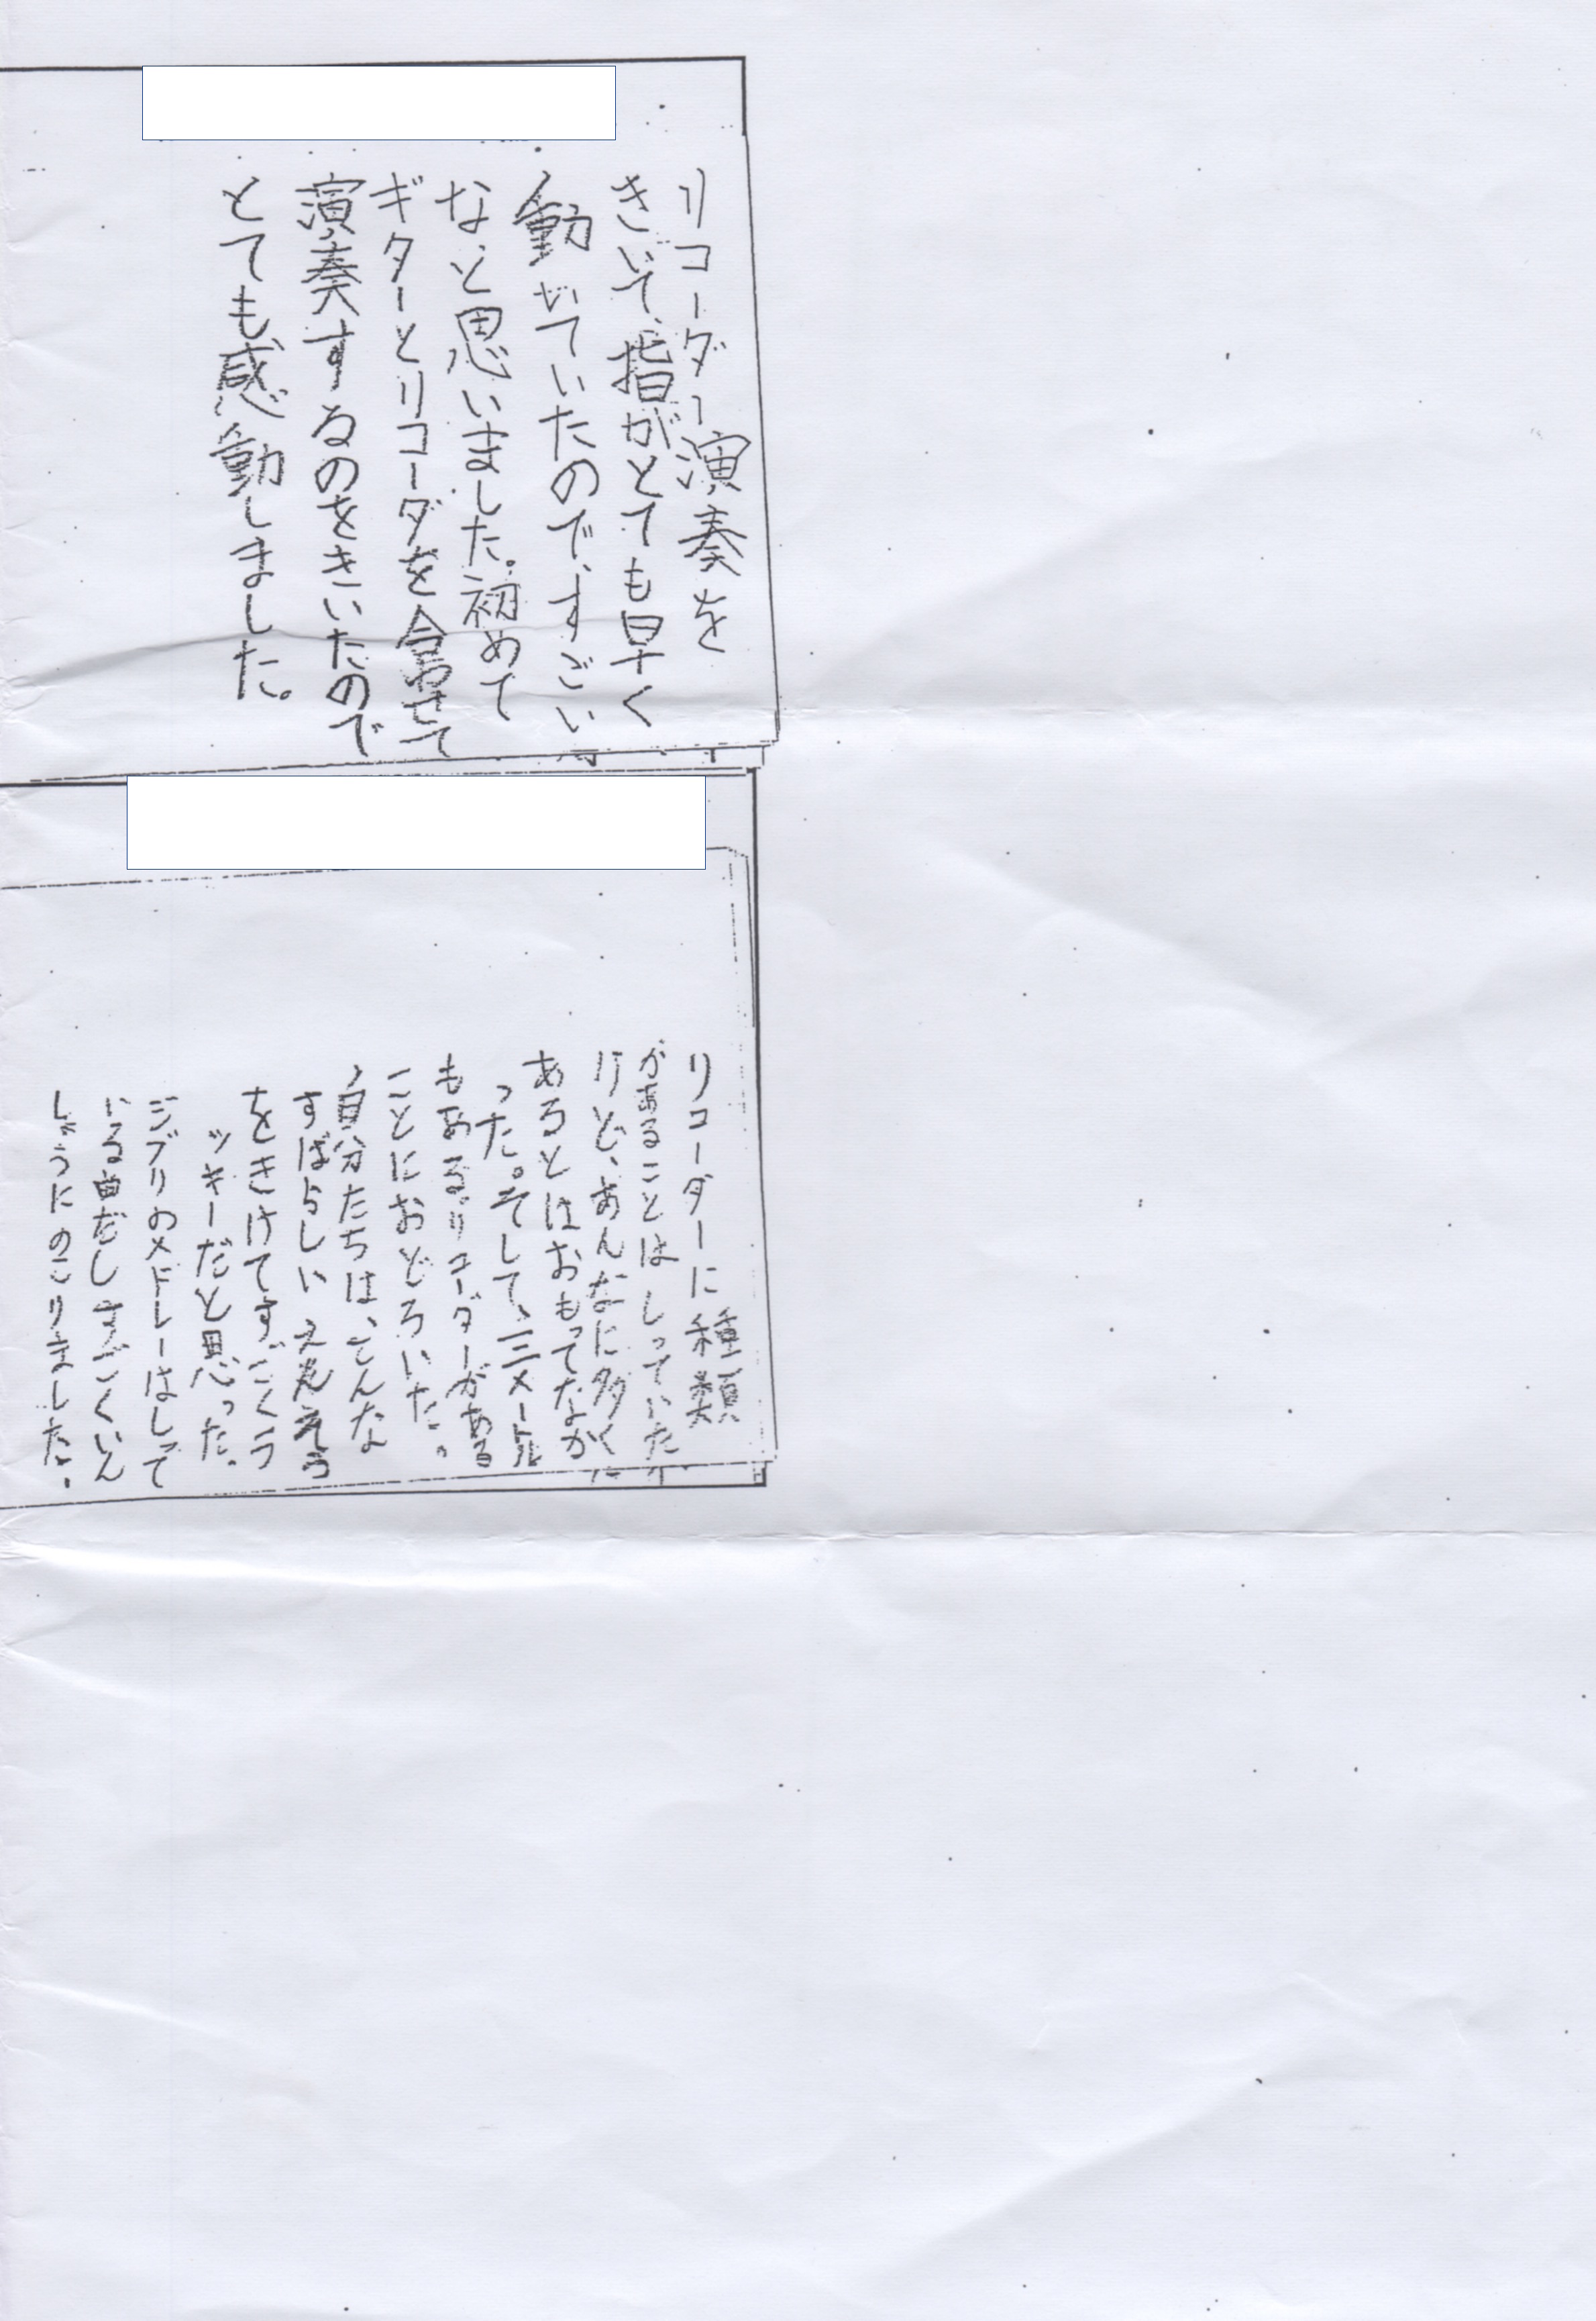 リコーダー演奏を
きいて、指がとても早く
動いていたので、すごい
な、と思いました。初めて
ギターとリコーダを合わせて
演奏するのをきいたので
とても感動しました。
リコーダーに種類
があることは しっていた
けど、あんなに多く
あるとはおもってなか
った。そして、三メートル
もあるリコーダーがある
ことにおどろいた。
自分たちは、こんな
すばらしい えんそう
をきけてすごくラ
ッキーだと思った。
ジブリのメドレーはしって
いる曲だしすごくいん
しょうにのこりました。